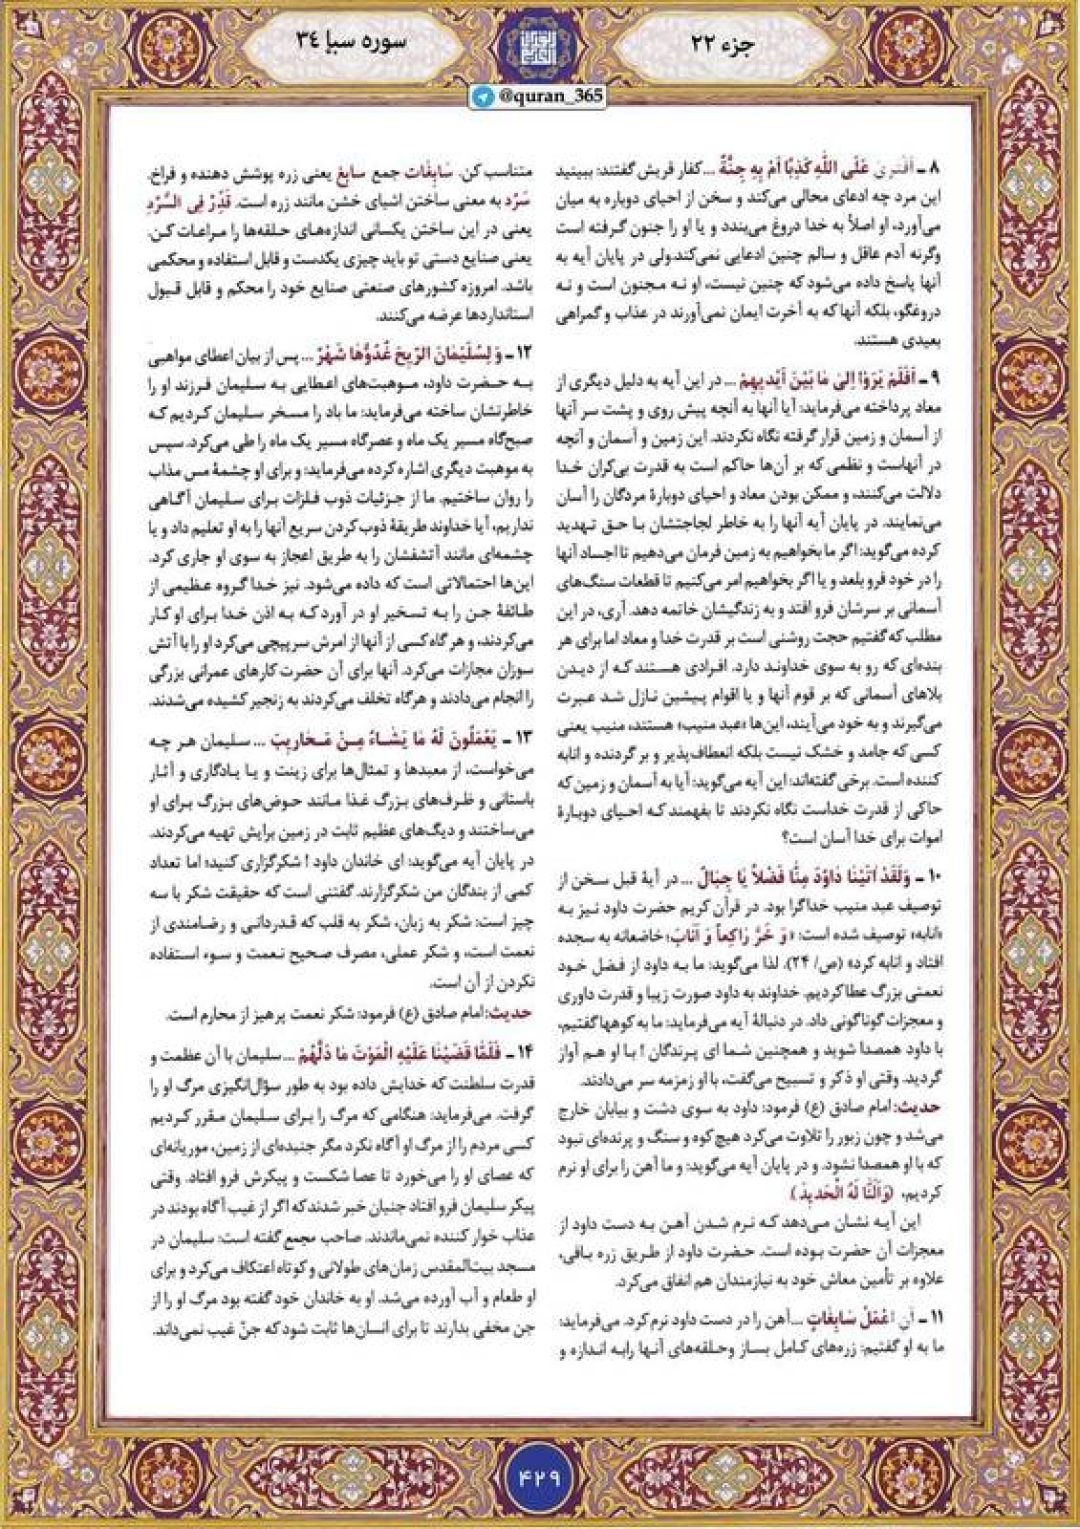 جزء ٢٢
سوره سبإ ٣٤
@quran_365
٨ ـ اَفْتَرىٰ عَلَى اللّٰهِ كَذِبًا اَمْ بِهِ جِنَّةٌ ...کفار قریش گفتند: ببینید
این مرد چه ادعای محالی می‌کند و سخن از احیای دوباره به میان
می‌آورد، او اصلاً به خدا دروغ می‌بندد و یا او را جنون گرفته است
وگرنه آدم عاقل و سالم چنین ادعایی نمی‌کند.ولی در پایان آیه به
آنها پاسخ داده می‌شود که چنین نیست، او نه مجنون است و نه
دروغگو، بلکه آنها که به آخرت ایمان نمی‌آورند در عذاب و گمراهی
بعیدی هستند.
٩ ـ اَفَلَمْ يَرَوْا اِلىٰ مَا بَيْنَ اَيْدِيهِمْ ... در این آیه به دلیل دیگری از
معاد پرداخته می‌فرماید: آیا آنها به آنچه پیش روی و پشت سر آنها
از آسمان و زمین قرار گرفته نگاه نکردند. این زمین و آسمان و آنچه
در آنهاست و نظمی که بر آن‌ها حاکم است به قدرت بی‌کران خدا
دلالت می‌کنند، و ممکن بودن معاد و احیای دوبارهٔ مردگان را آسان
می‌نمایند. در پایان آیه آنها را به خاطر لجاجتشان با حق تهدید
کرده می‌گوید: اگر ما بخواهیم به زمین فرمان می‌دهیم تا اجساد آنها
را در خود فرو بلعد و یا اگر بخواهیم امر می‌کنیم تا قطعات سنگ‌های
آسمانی بر سرشان فرو افتد و به زندگیشان خاتمه دهد. آری، در این
مطلب که گفتیم حجت روشنی است بر قدرت خدا و معاد اما برای هر
بنده‌ای که رو به سوی خداوند دارد. افرادی هستند که از دیدن
بلاهای آسمانی که بر قوم آنها و یا اقوام پیشین نازل شد عبرت
می‌گیرند و به خود می‌آیند، این‌ها «عبد منیب» هستند، منیب یعنی
کسی که جامد و خشک نیست بلکه انعطاف‌پذیر و بر گردنده و انابه
کننده است. برخی گفته‌اند: این آیه می‌گوید: آیا به آسمان و زمین که
حاکی از قدرت خداست نگاه نکردند تا بفهمند که احیای دوبارهٔ
اموات برای خدا آسان است؟
١٠ ـ وَلَقَدْ اٰتَيْنَا دَاوُدَ مِنَّا فَضْلاً يَا جِبَالُ ... در آیهٔ قبل سخن از
توصیف عبد منیب خداگرا بود. در قرآن کریم حضرت داود نیز به
«انابه» توصیف شده است: «وَ خَرَّ رَاكِعاً وَ اَنَابَ؛ خاضعانه به سجده
افتاد و انابه کرد» (ص/ ٢۴). لذا می‌گوید: ما به داود از فضل خود
نعمتی بزرگ عطا کردیم. خداوند به داود صورت زیبا و قدرت داوری
و معجزات گوناگونی داد. در دنبالهٔ آیه می‌فرماید: ما به کوهها گفتیم،
با داود همصدا شوید و همچنین شما ای پرندگان ! با او هم آواز
گردید. وقتی او ذکر و تسبیح می‌گفت، با او زمزمه سر می‌دادند.
حدیث: امام صادق (ع) فرمود: داود به سوی دشت و بیابان خارج
می‌شد و چون زبور را تلاوت می‌کرد هیچ کوه و سنگ و پرنده‌ای نبود
که با او همصدا نشود. و در پایان آیه می‌گوید: و ما آهن را برای او نرم
کردیم، (وَاَلَنَّا لَهُ الْحَديدَ)
این آیه نشان می‌دهد که نرم شدن آهن به دست داود از
معجزات آن حضرت بوده است. حضرت داود از طریق زره بافی،
علاوه بر تأمین معاش خود به نیازمندان هم انفاق می‌کرد.
١١ ـ اَنِ اعْمَلْ سَابِغَاتٍ ...آهن را در دست داود نرم کرد. می‌فرماید:
ما به او گفتیم: زره‌های کامل بساز وحلقه‌های آنها رابه اندازه و
متناسب کن. سَابِغَات جمع سابغ یعنی زره پوشش دهنده و فراخ.
سَرْد به معنی ساختن اشیای خشن مانند زره است. قَدِّرْ فِى السَّرْدِ
یعنی در این ساختن یکسانی اندازه‌های حلقه‌ها را مراعات کن.
یعنی صنایع دستی تو باید چیزی یکدست و قابل استفاده و محکمی
باشد. امروزه کشورهای صنعتی صنایع خود را محکم و قابل قبول
استانداردها عرضه می‌کنند.
١٢ ـ وَ لِسُلَيْمَانَ الرّيحَ غُدُوُّهَا شَهْرٌ ... پس از بیان اعطای مواهبی
به حضرت داود، موهبت‌های اعطایی به سلیمان فرزند او را
خاطرنشان ساخته می‌فرماید: ما باد را مسخر سلیمان کردیم که
صبح‌گاه مسیر یک ماه و عصرگاه مسیر یک ماه را طی می‌کرد. سپس
به موهبت دیگری اشاره کرده می‌فرماید: و برای او چشمهٔ مس مذاب
را روان ساختیم. ما از جزئیات ذوب فلزات برای سلیمان آگاهی
نداریم، آیا خداوند طریقهٔ ذوب کردن سریع آنها را به او تعلیم داد و یا
چشمه‌ای مانند آتشفشان را به طریق اعجاز به سوی او جاری کرد.
این‌ها احتمالاتی است که داده می‌شود. نیز خدا گروه عظیمی از
طائفهٔ جن را به تسخیر او در آورد که به اذن خدا برای او کار
می‌کردند، و هر گاه کسی از آنها از امرش سرپیچی می‌کرد او را با آتش
سوزان مجازات می‌کرد. آنها برای آن حضرت کارهای عمرانی بزرگی
را انجام می‌دادند و هرگاه تخلف می‌کردند به زنجیر کشیده می‌شدند.
١٣ ـ يَعْمَلُونَ لَهُ مَا يَشَاءُ مِنْ مَحَاريبَ ... سلیمان هر چه
می‌خواست، از معبدها و تمثال‌ها برای زینت و یا یادگاری و آثار
باستانی و ظرف‌های بزرگ غذا مانند حوض‌های بزرگ برای او
می‌ساختند و دیگ‌های عظیم ثابت در زمین برایش تهیه می‌کردند.
در پایان آیه می‌گوید: ای خاندان داود ! شکرگزاری کنید؛ اما تعداد
کمی از بندگان من شکرگزارند. گفتنی است که حقیقت شکر با سه
چیز است: شکر به زبان، شکر به قلب که قدردانی و رضامندی از
نعمت است، و شکر عملی، مصرف صحیح نعمت و سوء استفاده
نکردن از آن است.
حدیث: امام صادق (ع) فرمود: شکر نعمت پرهیز از محارم است.
١۴ ـ فَلَمَّا قَضَيْنَا عَلَيْهِ الْمَوْتَ مَا دَلَّهُمْ ... سلیمان با آن عظمت و
قدرت سلطنت که خدایش داده بود به طور سؤال‌انگیزی مرگ او را
گرفت. می‌فرماید: هنگامی که مرگ را برای سلیمان مقرر کردیم
کسی مردم را از مرگ او آگاه نکرد مگر جنبده‌ای از زمین، موریانه‌ای
که عصای او را می‌خورد تا عصا شکست و پیکرش فرو افتاد. وقتی
پیکر سلیمان فرو افتاد جنیان خبر شدند که اگر از غیب آگاه بودند در
عذاب خوار کننده نمی‌ماندند. صاحب مجمع گفته است: سلیمان در
مسجد بیت‌المقدس زمان‌های طولانی و کوتاه اعتکاف می‌کرد و برای
او طعام و آب آورده می‌شد. او به خاندان خود گفته بود مرگ او را از
جن مخفی بدارند تا برای انسان‌ها ثابت شود که جنّ غیب نمی‌داند.
۴٢٩